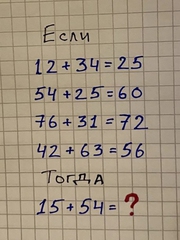 Если
12+34=25
54+25=60
76+31=72
42+63=56
Тогда
15+54=?